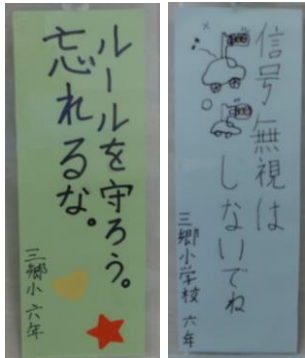 ルールを守ろう。
忘れるな。
三郷小 六年
信号無視は
しないでね
三郷小学校 六年